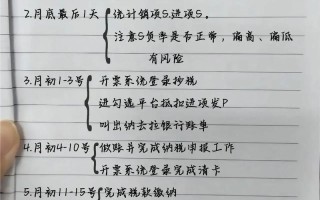 2.月底最后1天
统计销项S.进项S.
注意S负率是否正常,偏高、偏低
有风险
3.月初1-3号
开票系统登录抄税
进勾选平台抵扣进项发P
叫出纳去拉银行账单
4.月初4-10号
做账并完成纳税申报工作
开票系统登录完成清卡
5.月初11-15号
完成税款缴纳